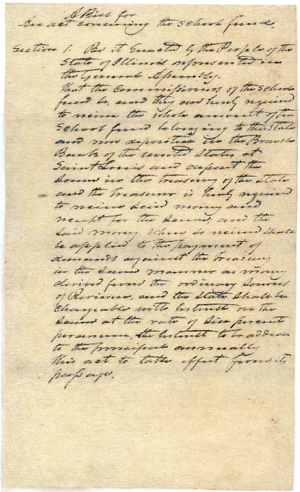 A Bill for
An act concerning the School fund.
Section 1. Be it Enacted by the People of the
State of Illinois represented in
the General Assembly.
That the Commissioners of the School
fund be and they are hereby required
to receive the whole amount of the
School fund belonging to this State
and now deposited in the Branch
Bank of the United States at
Saint Louis and deposit the
same in the treasury of the State
and the treasurer is hereby required
to receive said money and
receipt for the same, and the
said money when so received shall
be applied to the payment of
demands against the treasury
in the same manner as money
derived from the ordinary sources
of Revenue, and the State shall be
chargeable with interest on the
same at the rate of six percent
per annum, the interest to be added
to the principal annually
this act to take effect from its
passage.